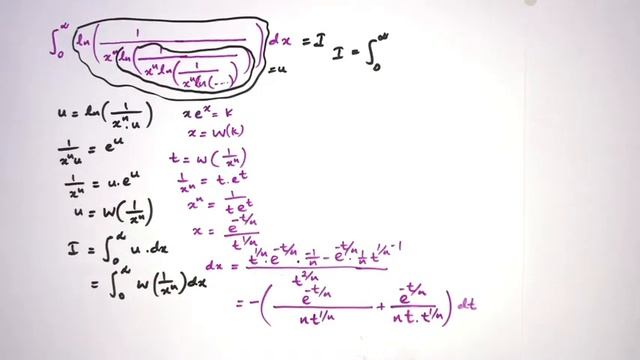 ∫₀^∞ ln(1/(xⁿ ln(1/(xⁿ ln(1/(xⁿ ln(....))))))) dx = I
= u
I = ∫₀^∞
u = ln(1/(xⁿ.u))
1/(xⁿu) = e^u
1/xⁿ = u.e^u
u = W(1/xⁿ)
I = ∫₀^∞ u.dx
= ∫₀^∞ W(1/xⁿ)dx
xe^x = k
x = W(k)
t = W(1/xⁿ)
1/xⁿ = t.e^t
xⁿ = 1/(te^t)
x = e^(-t/n)/t^(1/n)
dx = (t^(1/n).e^(-t/n).(-1/n) - e^(-t/n).(1/n)t^(1/n-1))/t^(2/n)
= -(e^(-t/n)/(nt^(1/n)) + e^(-t/n)/(nt.t^(1/n))) dt